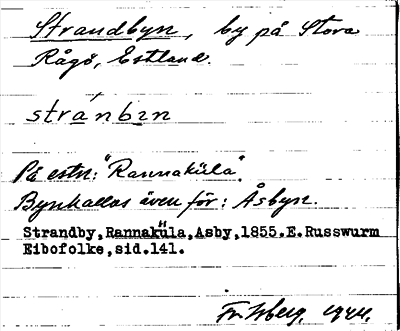 Strandbyn, by på Stora
Rågö, Estland.
stránbɪn
På estn: "Rannaküla".
Byn kallas även för: Åsbyn.
Strandby, Rannaküla, Asby, 1855. E. Russwurm
Eibofolke, sid. 141.
1944.